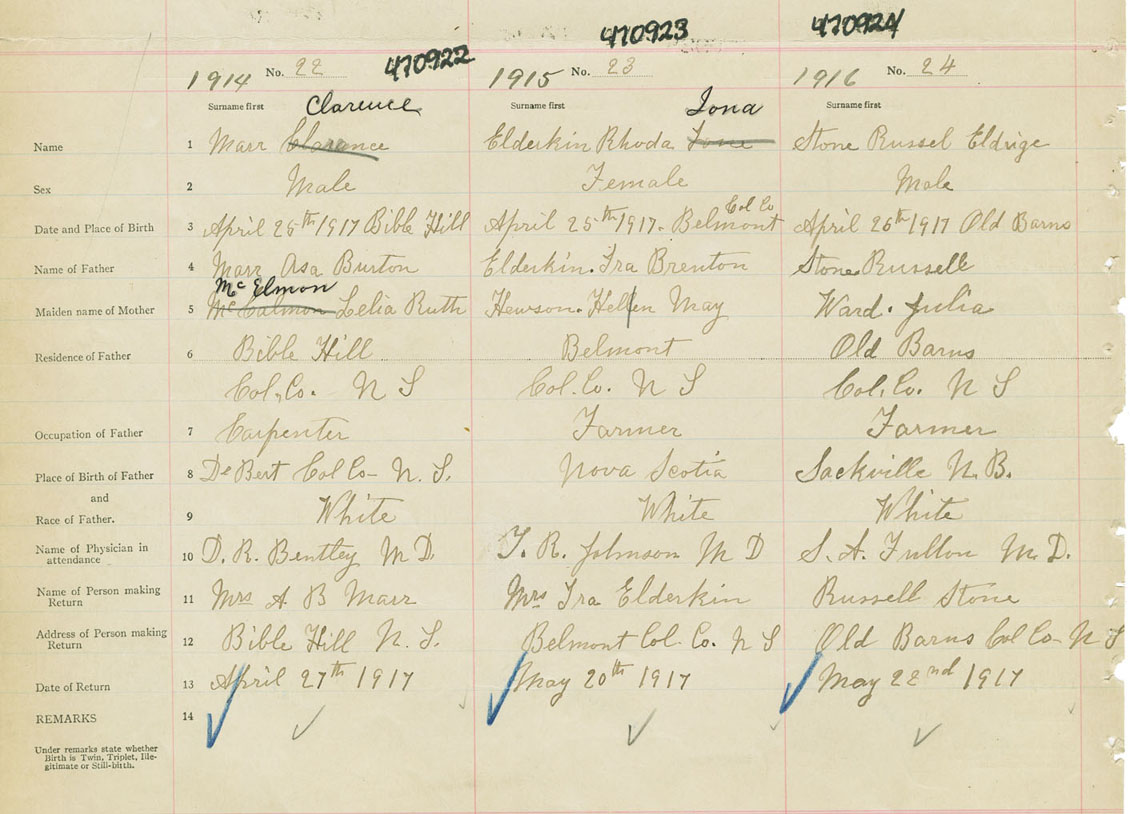 470922 470923 470924
1914 No. 22 1915 No. 23 1916 No. 24
Surname first Clarence Surname first Iona Surname first
Name 1 Marr Clarence Elderkin Rhoda Ione Stone Russel Eldrige
Sex 2 Male Female Male
Col Co
Date and Place of Birth 3 April 25th 1917 Bible Hill April 25th 1917. Belmont April 26th 1917 Old Barns
Name of Father 4 Marr Asa Burton Elderkin. Ira Brenton Stone Russell
McElmon
Maiden name of Mother 5 McCalmon Lelia Ruth Hewson. Hellen May Ward. Julia
Residence of Father 6 Bible Hill Belmont Old Barns
Col. Co. N S Col. Co. N S Col. Co. N S
Occupation of Father 7 Carpenter Farmer Farmer
Place of Birth of Father 8 DeBert Col Co- N. S. Nova Scotia Sackville N. B.
and
Race of Father. 9 White White White
Name of Physician in attendance 10 D. R. Bentley M D. T. R. Johnson M D S. A. Fullon M. D.
Name of Person making Return 11 Mrs A B Marr Mrs Ira Elderkin Russell Stone
Address of Person making Return 12 Bible Hill N. S. Belmont Col. Co. N S Old Barns Col Co- N S
Date of Return 13 April 27th 1917 May 20th 1917 May 22nd 1917
REMARKS 14
Under remarks state whether
Birth is Twin, Triplet, Ille-
gitimate or Still-birth.